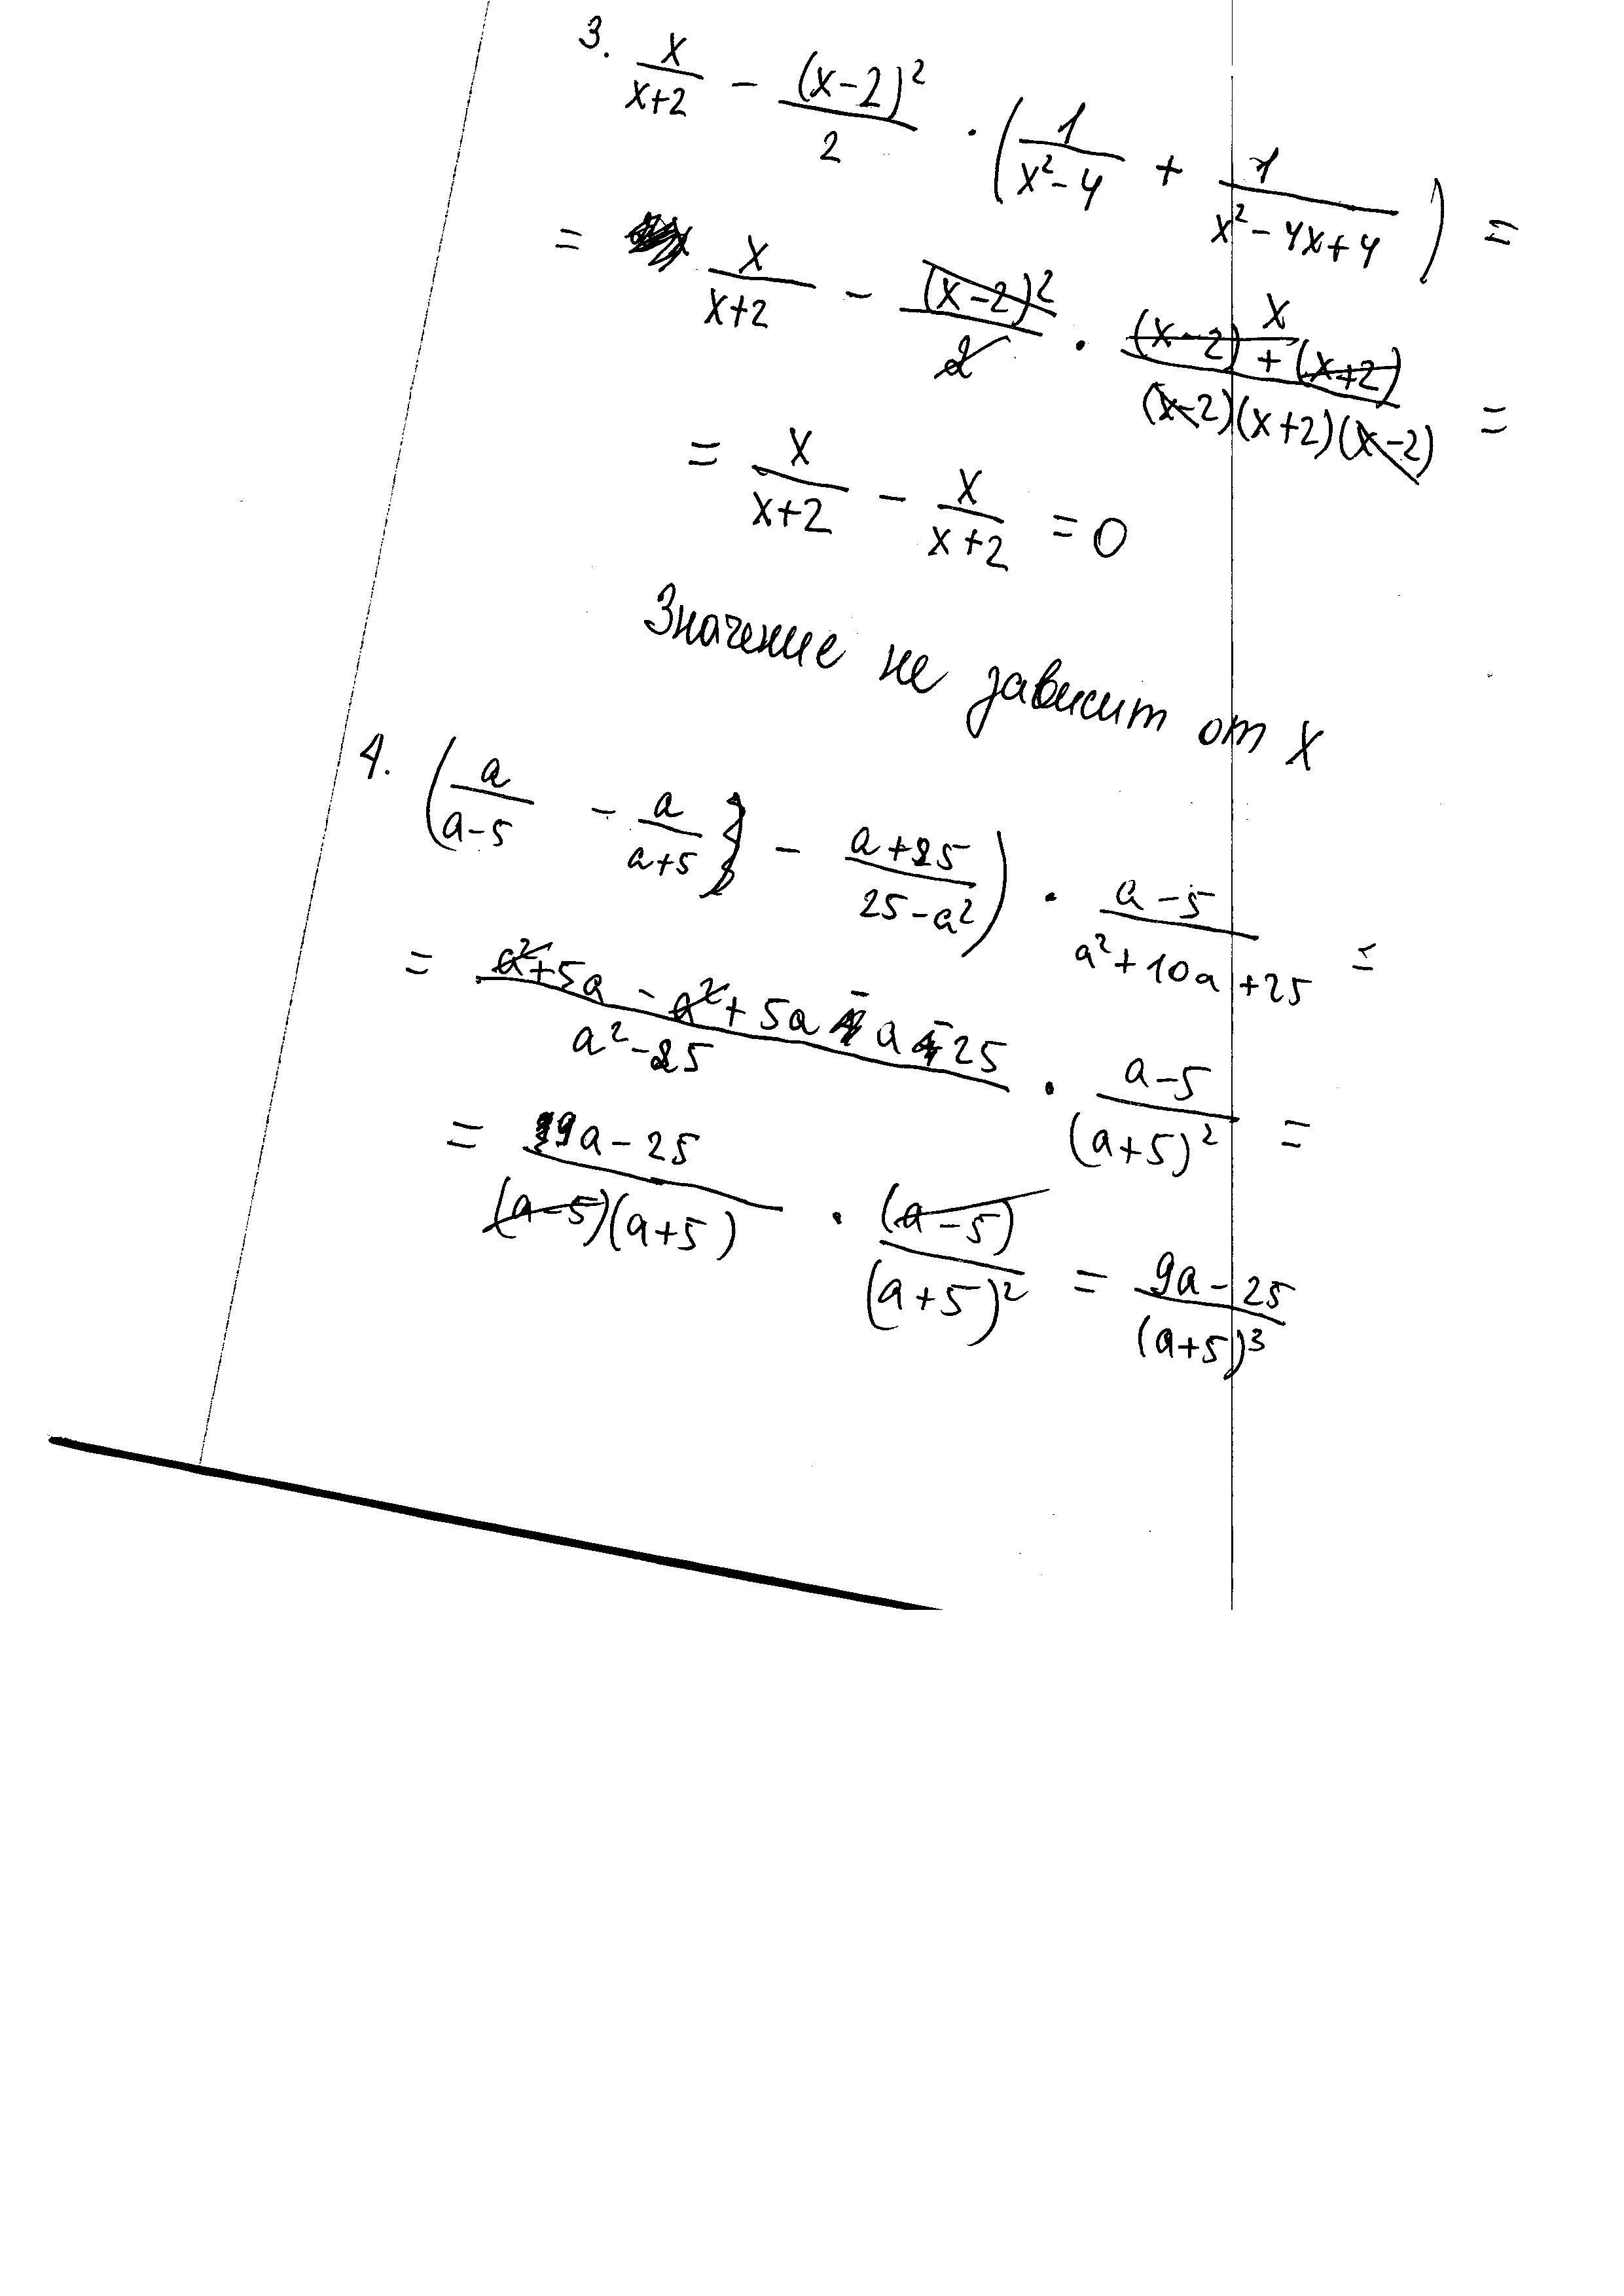 3. x/(x+2) − (x−2)²/2 · (1/(x²−4) + 1/(x²−4x+4)) =
= x/(x+2) − (x−2)²/2 · ((x−2) + (x+2))/((x−2)(x+2)(x−2)) =
= x/(x+2) − x/(x+2) = 0
Значение не зависит от x
4. (a/(a−5) − a/(a+5) − (a+25)/(25−a²)) · (a−5)/(a²+10a+25) =
= (a²+5a − a²+5a − a − 25)/(a²−25) · (a−5)/(a+5)² =
= (9a−25)/((a−5)(a+5)) · (a−5)/(a+5)² = (9a−25)/(a+5)³